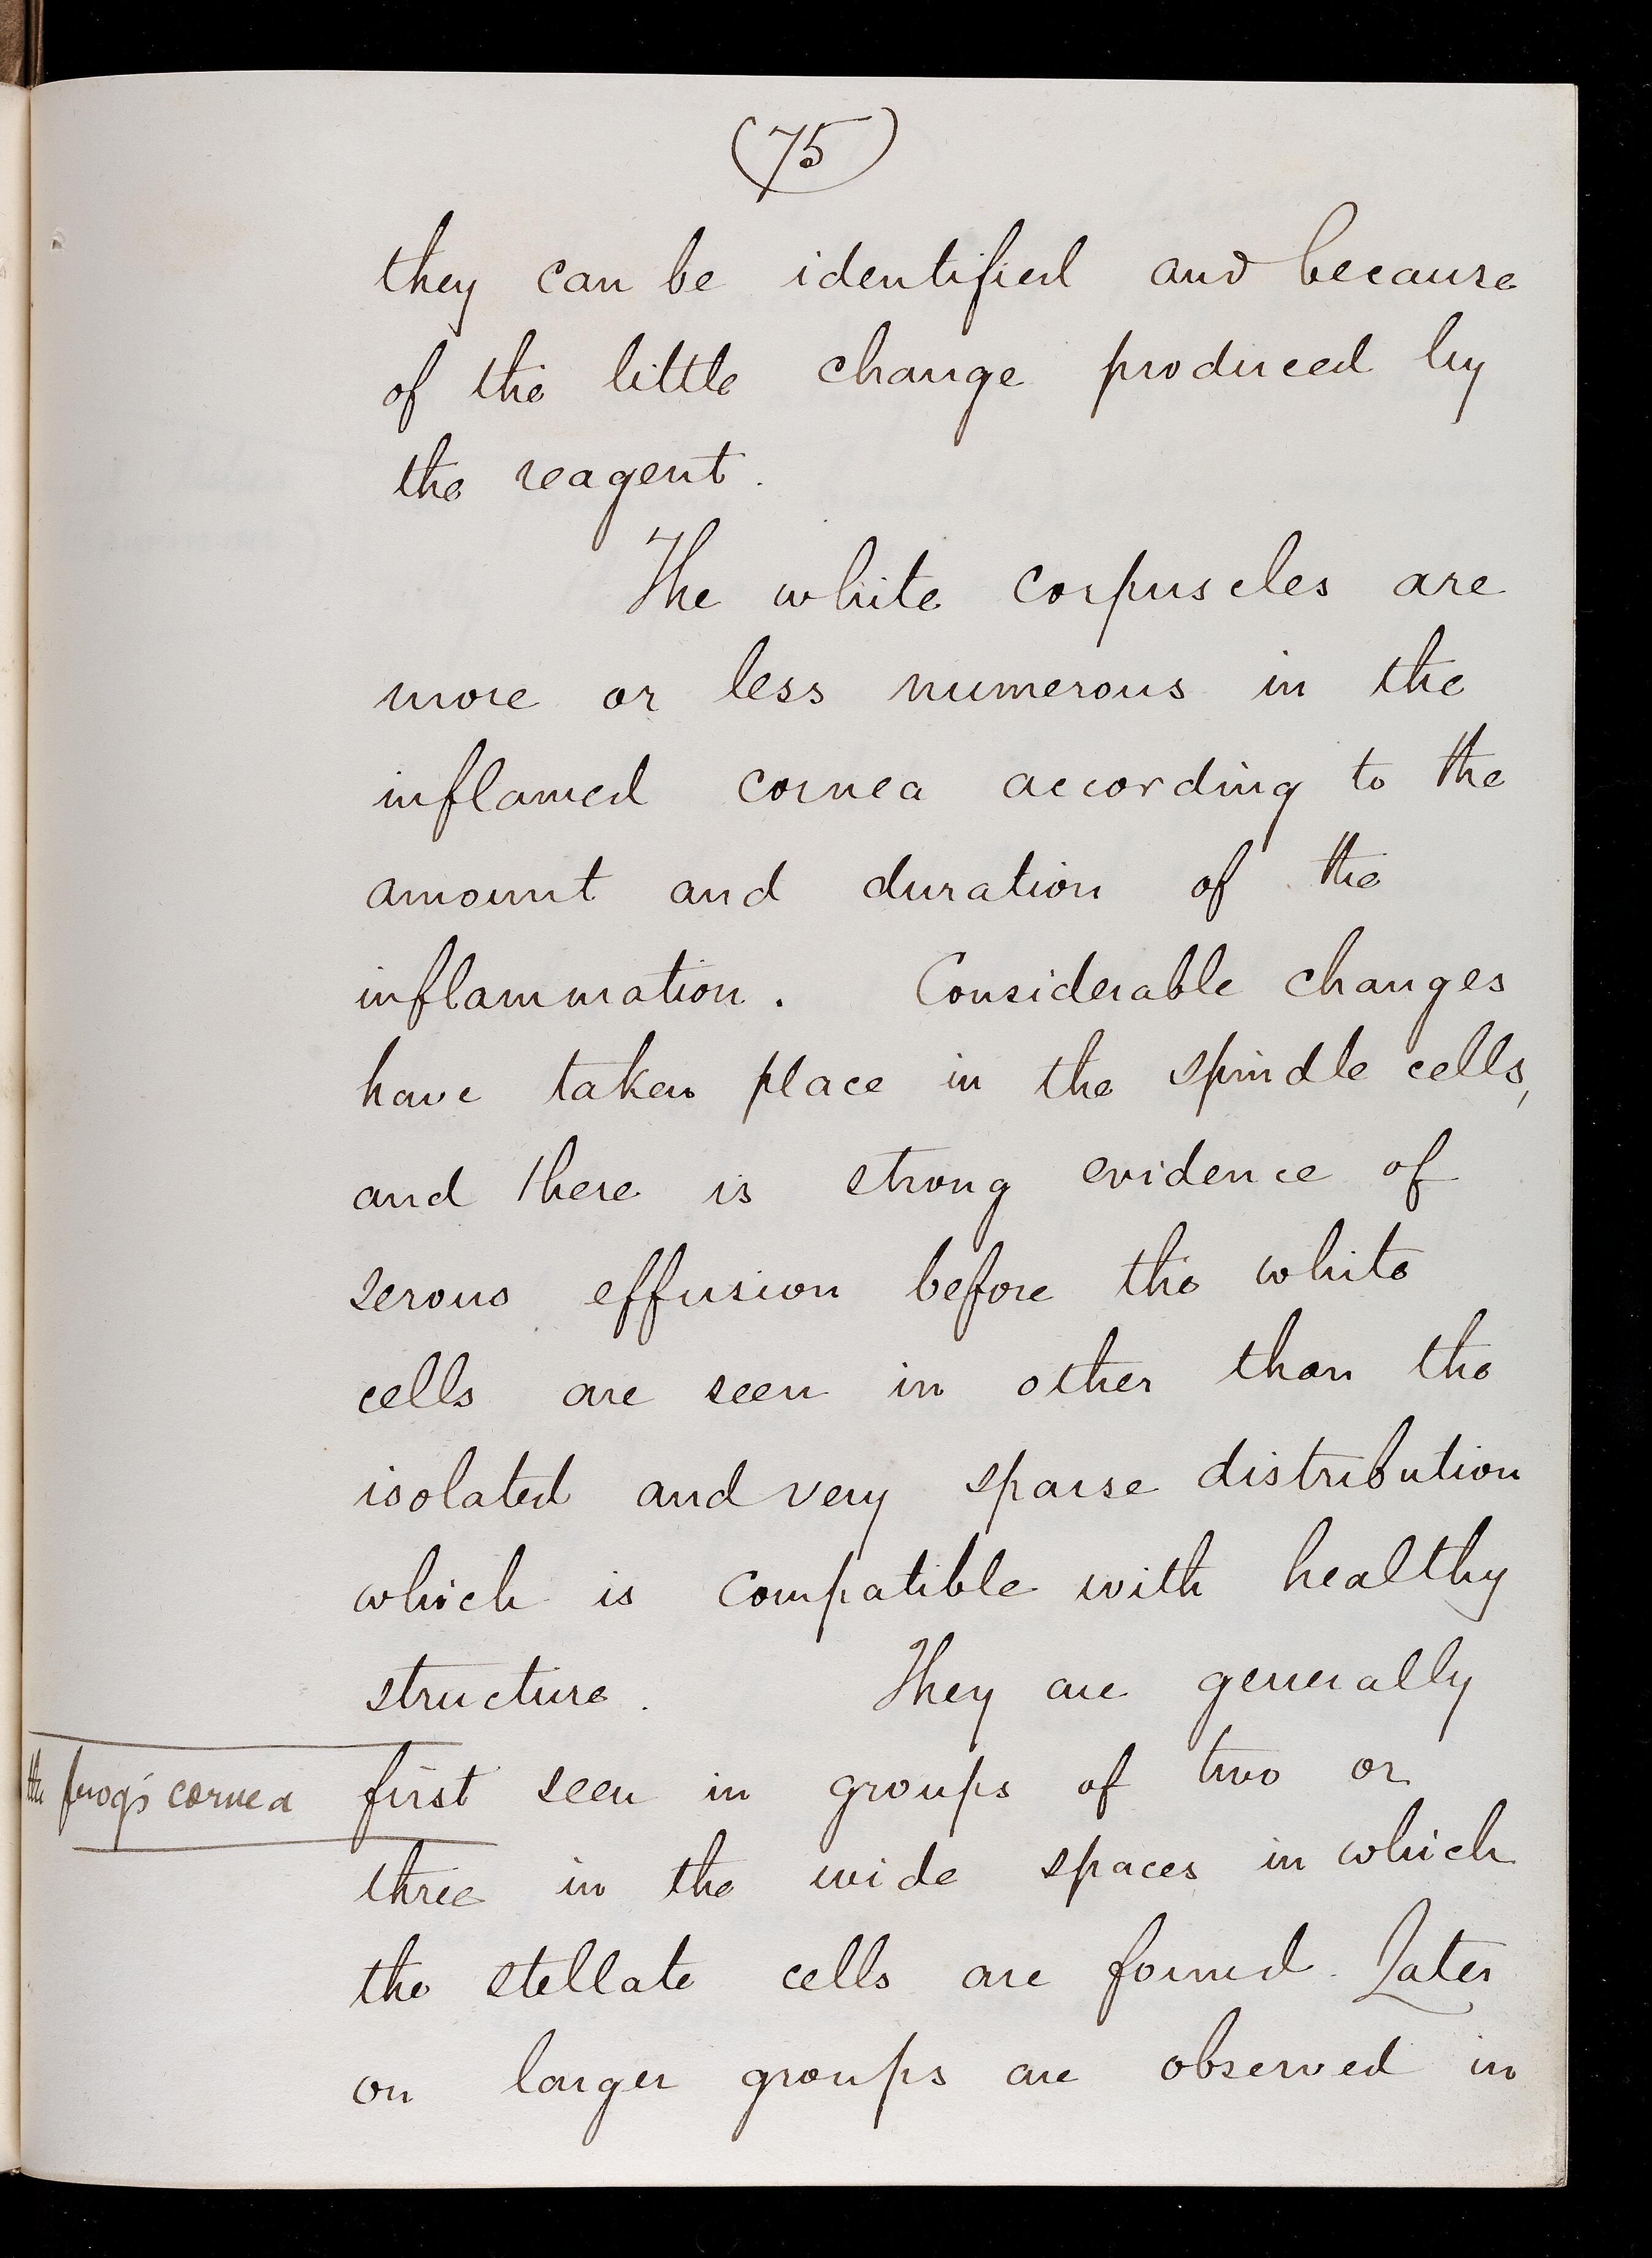 (75)
they can be identified and because
of the little change produced by
the reagent.
The white corpuscles are
more or less numerous in the
inflamed cornea according to the
amount and duration of the
inflammation. Considerable changes
have taken place in the spindle cells,
and there is strong evidence of
serous effusion before the white
cells are seen in other than the
isolated and very sparse distribution
which is compatible with healthy
structure. They are generally
the frog's cornea
first seen in groups of two or
three in the wide spaces in which
the stellate cells are found. Later
on larger groups are observed in